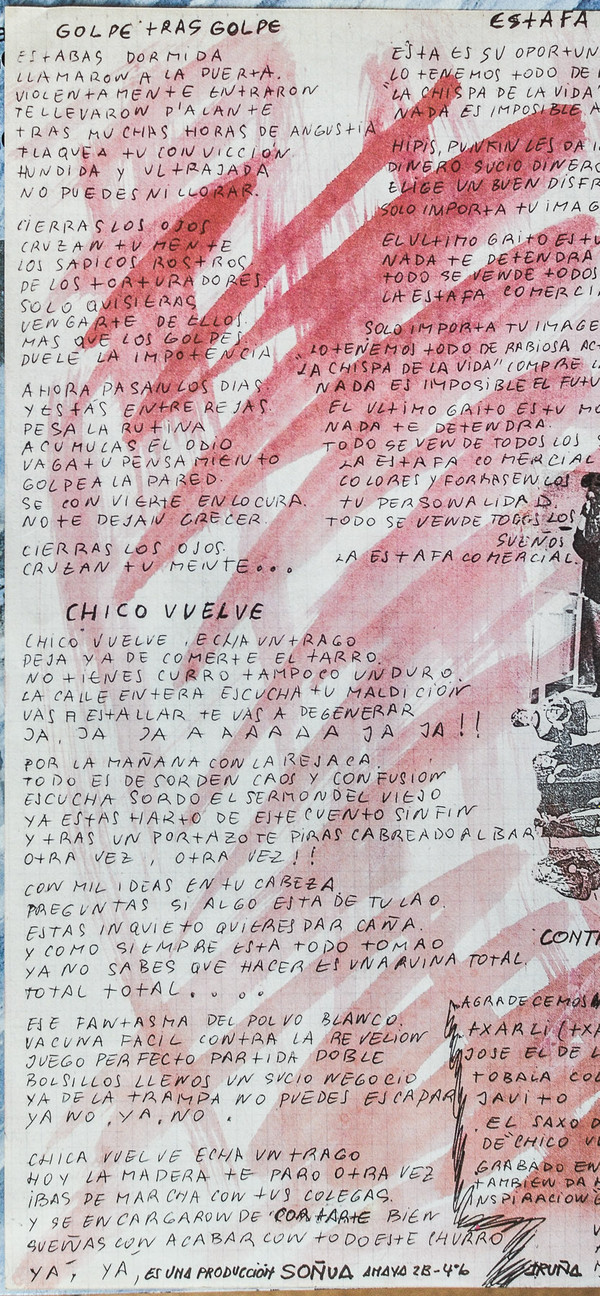 GOLPE TRAS GOLPE
ESTABAS DORMIDA
LLAMARON A LA PUERTA.
VIOLENTAMENTE ENTRARON
TE LLEVARON D'ALANTE
TRAS MUCHAS HORAS DE ANGUSTIA
FLAQUEA TU CONVICCIÓN
HUNDIDA Y ULTRAJADA
NO PUEDES NI LLORAR.
CIERRAS LOS OJOS
CRUZAN TU MENTE
LOS SADICOS ROSTROS
DE LOS TORTURADORES.
SOLO QUISIERAS
VENGARTE DE ELLOS.
MAS QUE LOS GOLPES.
DUELE LA IMPOTENCIA
AHORA PASAN LOS DIAS.
Y ESTAS ENTRE REJAS.
PESA LA RUTINA
ACUMULAS EL ODIO
VAGA TU PENSAMIENTO
GOLPEA LA PARED.
SE CONVIERTE EN LOCURA.
NO TE DEJAN CRECER.
CIERRAS LOS OJOS.
CRUZAN TU MENTE...
CHICO VUELVE
CHICO VUELVE, ECHA UN TRAGO
DEJA YA DE COMERTE EL TARRO.
NO TIENES CURRO TAMPOCO UN DURO.
LA CALLE ENTERA ESCUCHA TU MALDICION
VAS A ESTALLAR TE VAS A DEGENERAR
JA, JA JA A A A A A JA JA!!
POR LA MAÑANA CON LA RESACA.
TODO ES DESORDEN CAOS Y CONFUSION
ESCUCHA SORDO EL SERMON DEL VIEJO
YA ESTAS HARTO DE ESTE CUENTO SIN FIN
Y TRAS UN PORTAZO TE PIRAS CABREADO AL BAR
OTRA VEZ, OTRA VEZ!!
CON MIL IDEAS EN TU CABEZA.
PREGUNTAS SI ALGO ESTA DE TU LAO.
ESTAS INQUIETO QUIERES DAR CAÑA.
Y COMO SIEMPRE ESTA TODO TOMAO
YA NO SABES QUE HACER ES UNA RUINA TOTAL.
TOTAL TOTAL....
ESE FANTASMA DEL POLVO BLANCO.
VACUNA FACIL CONTRA LA REVELION
JUEGO PERFECTO PARTIDA DOBLE
BOLSILLOS LLENOS UN SUCIO NEGOCIO
YA DE LA TRAMPA NO PUEDES ESCAPAR
YA NO, YA, NO.
CHICA VUELVE ECHA UN TRAGO
HOY LA MADERA TE PARO OTRA VEZ
IBAS DE MARCHA CON TUS COLEGAS.
Y SE ENCARGARON DE CORTARTE BIEN
SUEÑAS CON ACABAR CON TODO ESTE CHURRO
YA, YA, ES UNA PRODUCCIÓN SOÑUA AMAYA 2B-4º6 IRUÑA
ESTAFA
ESTA ES SU OPORTUN
LO TENEMOS TODO DE
"LA CHISPA DE LA VIDA"
NADA ES IMPOSIBLE
HIPIS, PUNKIN LES DA
DINERO SUCIO DINERO
ELIGE UN BUEN DISFR
SOLO IMPORTA TU IMAG
EL ULTIMO GRITO ES TU
NADA TE DETENDRA
TODO SE VENDE TODOS
LA ESTAFA COMERCI
SOLO IMPORTA TU IMAGE
LO TENEMOS TODO DE RABIOSA AC
"LA CHISPA DE LA VIDA" COMPRE LA
NADA ES IMPOSIBLE EL FUTU
EL ULTIMO GRITO ES TU MO
NADA TE DETENDRA.
TODO SE VENDE TODOS LOS S
LA ESTAFA COMERCIAL
COLORES Y FORMAS EN LOS
TU PERSONALIDAD.
TODO SE VENDE TODOS LOS
SUEÑOS
LA ESTAFA COMERCIAL.
CONT
AGRADECEMOS A
TXARLI (TXA
JOSE EL DE L
TOBALA COL
JAVITO
EL SAXO D
DE CHICO VU
GRABADO EN
TAMBIEN DA
INSPIRACION